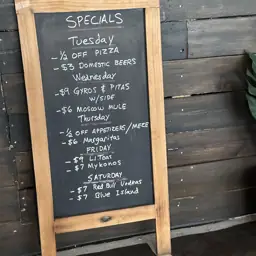 SPECIALS
Tuesday
- ½ OFF PIZZA
- $3 DOMESTIC BEERS
Wednesday
- $9 GYROS & PITAS
W/SIDE
- $6 MOSCOW MULE
Thursday
- ½ OFF APPETIZERS/MEZE
- $6 Margaritas
FRIDAY
- $9 LiTeas
- $7 Mykonos
SATURDAY
- $7 Red Bull Vodkas
- $7 Blue Island